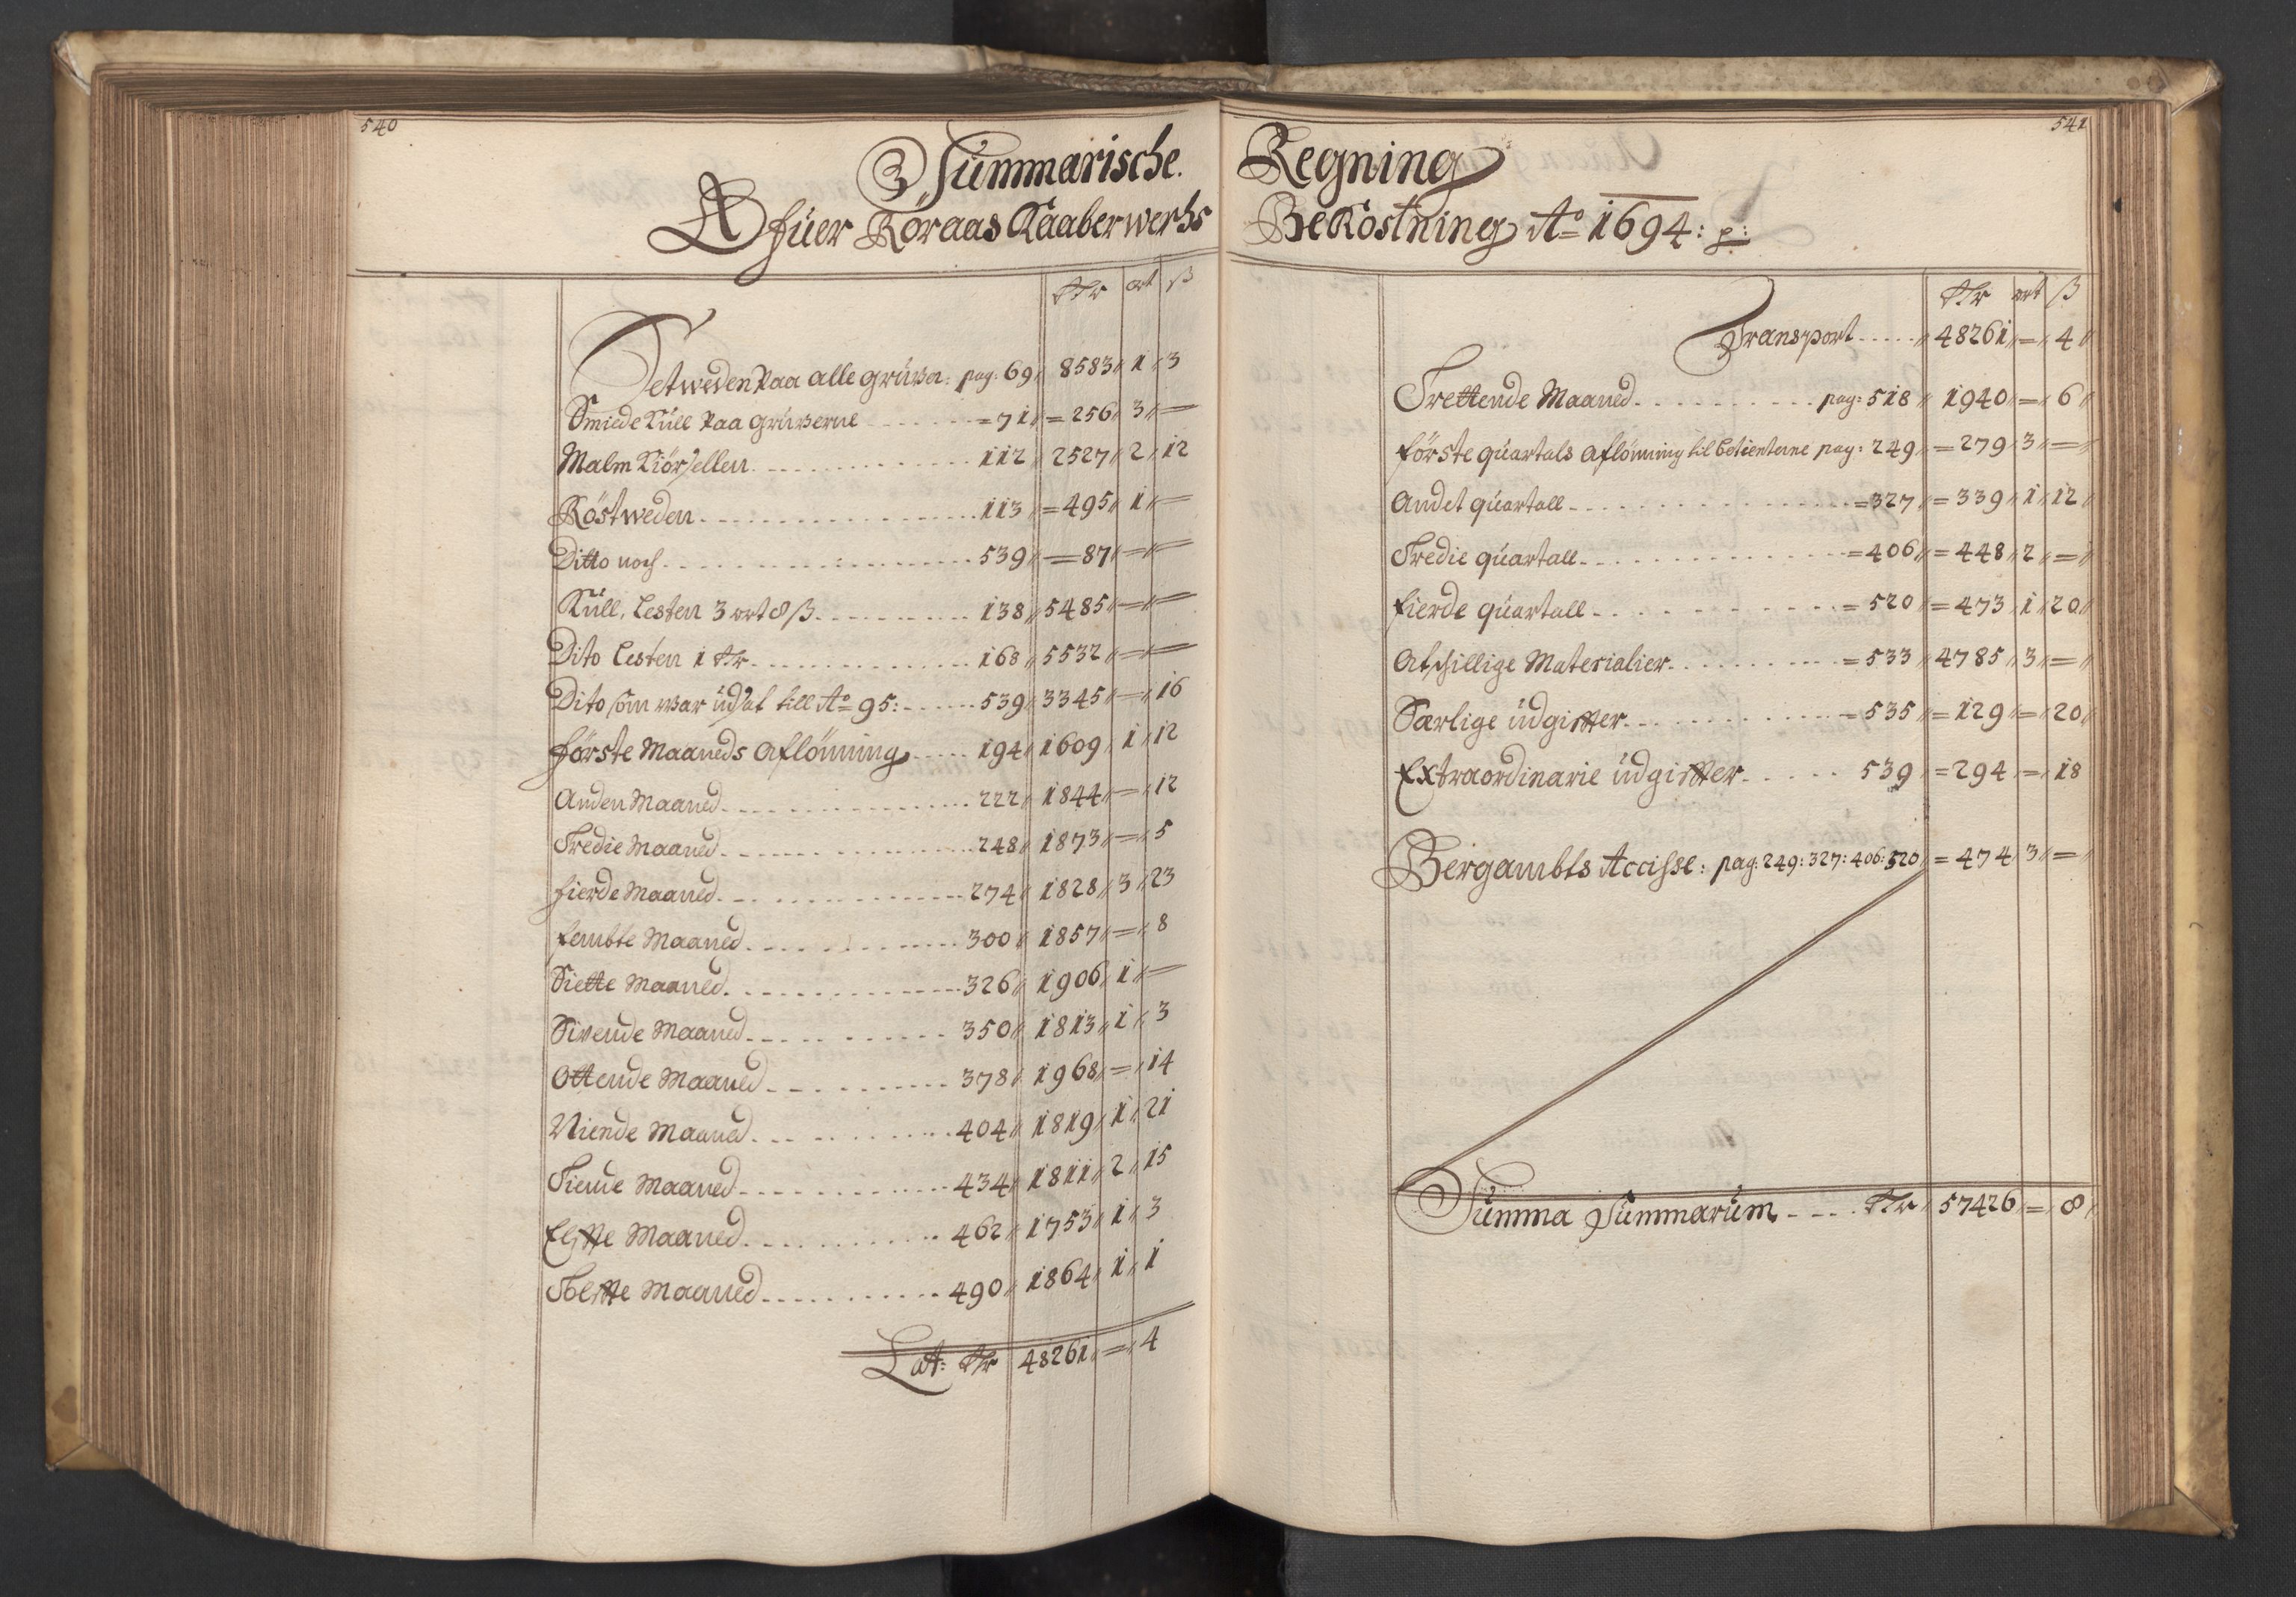 540
Summarische
Afüer Röraas Kaaberwerks
Rdr ort ß
Setweden paa alle grüber: pag: 69 8583 1 3
Smiede Küll paa grüberne = 71 = 256 3 —
Malm Kiörsellen 112 2527 2 12
Röstweden 113 = 495 1 —
Ditto noch 539 = 87 — —
Küll, Lesten 3 ort 8 ß 138 5485 — —
Dito Lesten 1 Rdr 168 5532 — —
Dito som war üdsat till Ao 95: 539 3345 — 16
förste Maaneds Aflönning 194 1609 1 12
Anden Maaned 222 1844 — 12
Tredie Maaned 248 1873 — 5
fierde Maaned 274 1828 3 23
fembte Maaned 300 1857 — 8
Siette Maaned 326 1906 1 —
Sivende Maaned 350 1813 1 3
Ottende Maaned 378 1968 = 14
Niende Maaned 404 1819 1 21
Tiende Maaned 434 1811 2 15
Elffte Maaned 462 1753 1 3
Tolffte Maaned 490 1864 1 1
Lat: Rdr 48261 = 4
541
Regning
Bekostning Ao 1694: p:
Rdr ort ß
Transport 48261 = 4
Trettende Maaned pag: 518 1940 = 6
förste quartals Aflönning til betienterne pag: 249 = 279 3 =
Andet quartall = 327 = 339 1 12
Tredie quartall = 406 = 448 2 =
fierde quartall = 520 = 473 1 20
Atschillige Materialier = 533 4785 3 =
Særlige üdgiffter = 535 = 129 = 20
Extraordinarie üdgiffter 539 = 294 = 18
Bergambts Accisse: pag: 249: 327: 406: 520 = 474 3 =
Summa Summarüm Rdr 57426 = 8